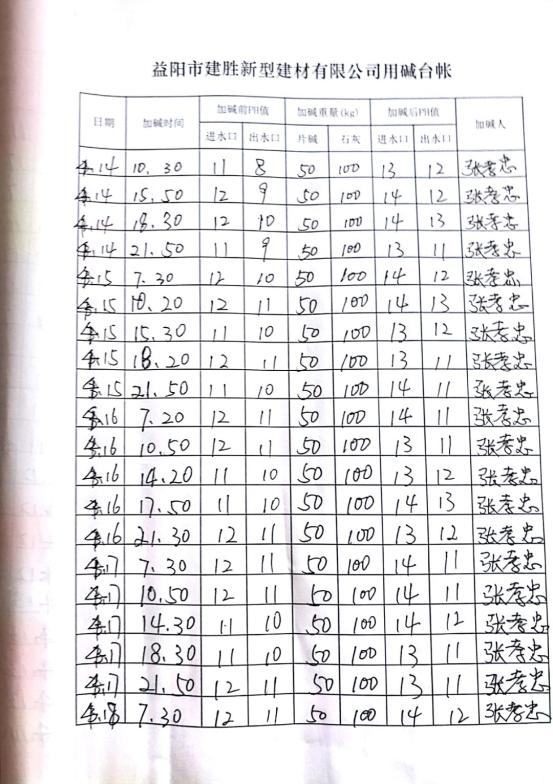 益阳市建胜新型建材有限公司用碱台帐
日期 加碱时间 加碱前PH值 加碱重量(kg) 加碱后PH值 加碱人
进水口 出水口 片碱 石灰 进水口 出水口
4.14 10.30 11 8 50 100 13 12 张孝忠
4.14 15.50 12 9 50 100 14 12 张孝忠
4.14 18.30 12 10 50 100 14 13 张孝忠
4.14 21.50 11 9 50 100 13 11 张孝忠
4.15 7.30 12 10 50 100 14 12 张孝忠
4.15 10.20 12 11 50 100 14 13 张孝忠
4.15 15.30 11 10 50 100 13 12 张孝忠
4.15 18.20 12 11 50 100 13 11 张孝忠
4.15 21.50 11 10 50 100 14 11 张孝忠
4.16 7.20 12 11 50 100 14 11 张孝忠
4.16 10.50 12 11 50 100 13 11 张孝忠
4.16 14.20 11 10 50 100 13 12 张孝忠
4.16 17.50 11 10 50 100 14 13 张孝忠
4.16 21.30 12 11 50 100 13 12 张孝忠
4.17 7.30 12 11 50 100 14 11 张孝忠
4.17 10.50 12 11 50 100 14 11 张孝忠
4.17 14.30 11 10 50 100 14 12 张孝忠
4.17 18.30 11 10 50 100 13 11 张孝忠
4.17 21.50 12 11 50 100 13 11 张孝忠
4.18 7.30 12 11 50 100 14 12 张孝忠